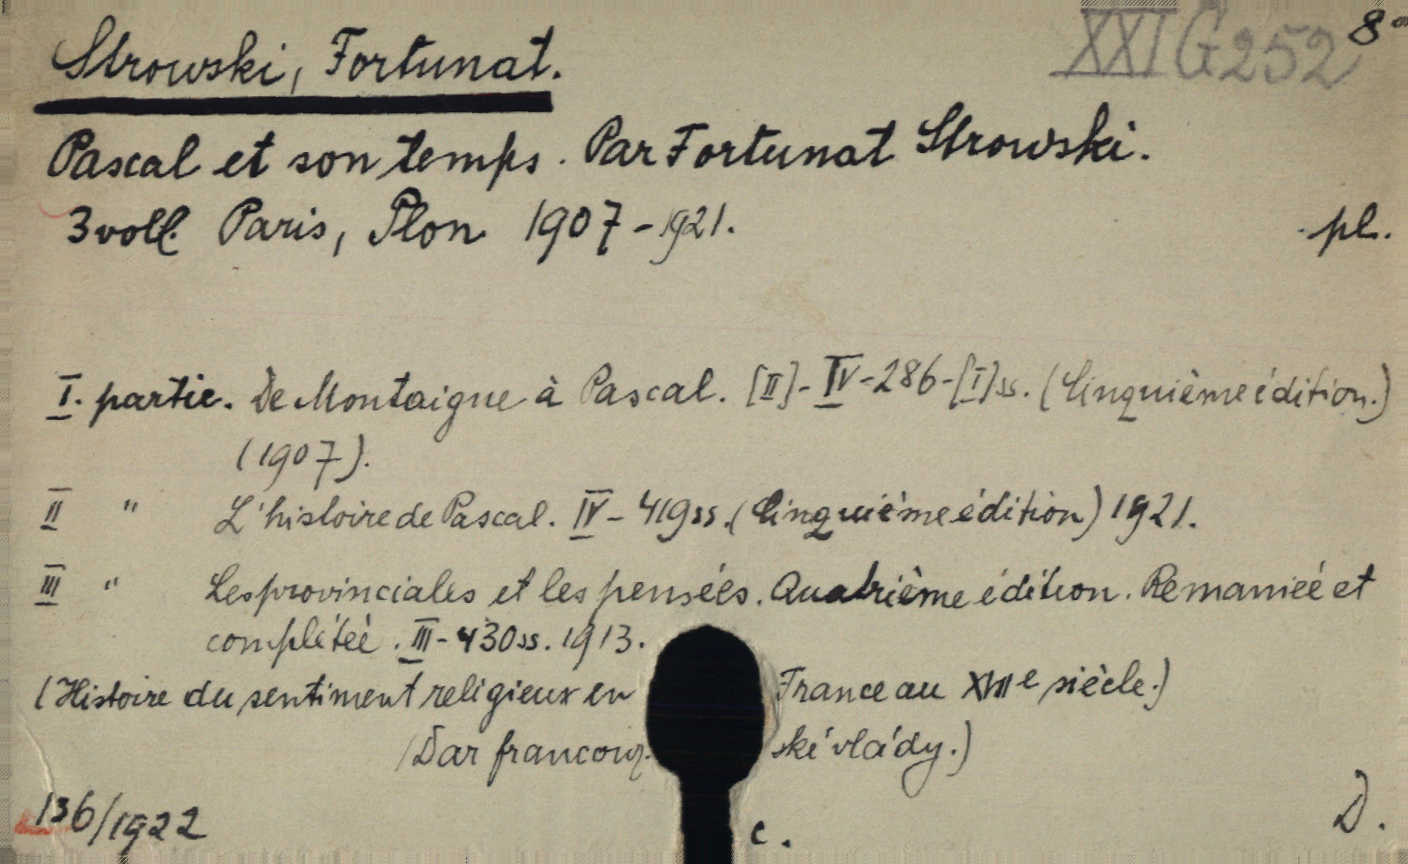 XXI G 252 8°
Strowski, Fortunat.
Pascal et son temps. Par Fortunat Strowski.
3 voll. Paris, Plon 1907-1921. pl.
I. partie. De Montaigne à Pascal. [II]-IV-286-[I]ss. (Cinquième édition.)
(1907).
II " L'histoire de Pascal. IV-419ss. (Cinquième édition) 1921.
III " Les provinciales et les pensées. Quatrième édition. Remaniéé et
complétéé. III-430ss. 1913.
(Histoire du sentiment religieux en France au XVIIe siècle.)
(Dar francouzské vlády.)
136/1922 c. D.